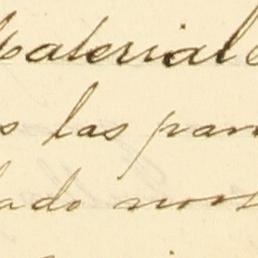 Material
s las par
ado nos